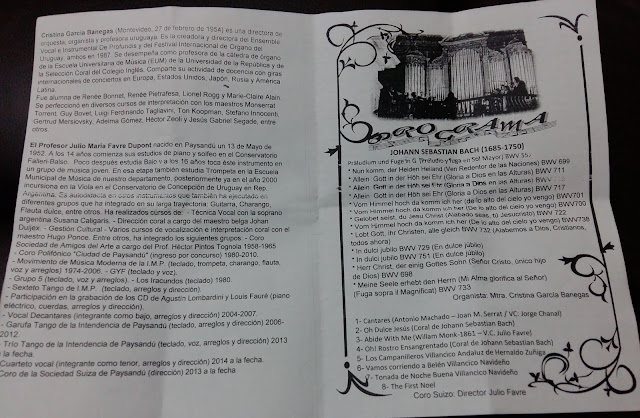 Cristina García Banegas (Montevideo, 27 de febrero de 1954) es una directora de
orquesta, organista y profesora uruguaya. Es la creadora y directora del Ensemble
Vocal e Instrumental De Profundis y del Festival Internacional de Órgano del
Uruguay, ambos en 1987. Se desempeña como profesora de la cátedra de órgano
de la Escuela Universitaria de Música (EUM) de la Universidad de la República y de
la Selección Coral del Colegio Inglés. Comparte su actividad de docencia con giras
internacionales de conciertos en Europa, Estados Unidos, Japón, Rusia y América
Latina.
Fue alumna de Renée Bonnet, Renée Pietrafesa, Lionel Rogg y Marie-Claire Alain.
Se perfeccionó en diversos cursos de interpretación con los maestros Montserrat
Torrent, Guy Bovet, Luigi Ferdinando Tagliavini, Ton Koopman, Stefano Innocenti,
Gertrud Mersiovsky, Adelma Gómez, Héctor Zeoli y Jesús Gabriel Segade, entre
otros.
El Profesor Julio María Favre Dupont nacido en Paysandú un 13 de Mayo de
1952. A los 14 años comienza sus estudios de piano y solfeo en el Conservatorio
Falleri-Balzo. Poco después estudia Bajo y a los 16 años toca este instrumento en
un grupo de música joven. En esa etapa también estudia Trompeta en la Escuela
Municipal de Música de nuestro departamento, posteriormente ya en el año 2000
incursiona en la Viola en el Conservatorio de Concepción de Uruguay en Rep.
Argentina. Es autodidacta en otros instrumentos que también ha ejecutado en
diferentes grupos que ha integrado a lo largo de su trayectoria: Guitarra, Charango,
Flauta dulce, entre otros. Ha realizados cursos de: - Técnica Vocal con la soprano
argentina Susana Caligaris. - Dirección coral a cargo del maestro belga Johan
Duijex. - Gestión Cultural - Varios cursos de vocalización e interpretación coral con el
maestro Hugo Ponce. Entre otros, ha integrado los siguientes grupos: - Coro
Sociedad de Amigos del Arte a cargo del Prof. Héctor Pintos Tognola 1958-1965
- Coro Polifónico "Ciudad de Paysandú" (ingreso por concurso) 1980-2010.
- Movimiento de Música Moderna de la I.M.P. (teclado, trompeta, charango, flauta,
voz y arreglos) 1974-2006. - GYF (teclado y voz).
- Grupo 5 (teclado, voz y arreglos). - Los Iracundos (teclado) 1980.
- Sexteto Tango de I.M.P. (teclado, arreglos y dirección).
- Participación en la grabación de los CD de Agustín Lombardini y Louis Fauré (piano
eléctrico, cuerdas, arreglos y dirección).
- Vocal Decantares (integrante como bajo, arreglos y dirección) 2004-2007.
- Garufa Tango de la Intendencia de Paysandú (teclado, arreglos y dirección) 2006-
2012.
- Trío Tango de la Intendencia de Paysandú (teclado, voz, arreglos y dirección) 2013
a la fecha.
Cuarteto vocal (integrante como tenor, arreglos y dirección) 2014 a la fecha.
Coro de la Sociedad Suiza de Paysandú (dirección) 2013 a la fecha
PROGRAMA
JOHANN SEBASTIAN BACH (1685-1750)
Präludium und Fuge in G (Preludio y fuga en Sol Mayor) BWV
* Nun komm, der Heiden Heiland (Ven Redentor de las Naciones) BWV 699
* Allein Gott in der Höh sei Ehr (Gloria a Dios en las Alturas) BWV 711
* Allein Gott in der Höh sei Ehr (Gloria a Dios en las Alturas) BWV
* Allein Gott in der Höh sei Ehr (Gloria a Dios en las Alturas) BWV 717
* Vom Himmel hoch da komm ich her (De lo alto del cielo yo vengo) BWV700
* Vom Himmel hoch da komm ich her (De lo alto del cielo yo vengo) BWV701
* Gelobet seist, du Jesu Christ (Alabado seas, tú Jesucristo) BWV 722
* Vom Himmel hoch da komm ich her (De lo alto del cielo yo vengo) BWV738
* Lobt Gott, ihr Christen, alle gleich BWV 732 (Alabemos a Dios, Cristianos,
todos ahora)
* In dulci jubilo BWV 729 (En dulce júbilo)
* In dulci jubilo BWV 751 (En dulce júbilo)
* Herr Christ, der einig Gottes Sohn (Señor Cristo, único hijo
de Dios) BWV 698
* Meine Seele erhebt den Herrn (Mi Alma glorifica al Señor)
(Fuga sopra il Magnificat) BWV 733
Organista: Mtra. Cristina García Banegas
1- Cantares (Antonio Machado – Joan M. Serrat / VC: Jorge Chanal)
2- Oh Dulce Jesús (Coral de Johann Sebastian Bach)
3- Abide With Me (Willam Monk-1861 – V.C. Julio Favre)
4- Oh! Rostro Ensangrentado (Coral de Johann Sebastian Bach)
5- Los Campanilleros Villancico Andaluz de Hernaldo Zuñiga
6- Vamos corriendo a Belén Villancico Navideño
7- Tonada de Noche Buena Villancico Navideño
8- The First Noel
Coro Suizo. Director Julio Favre